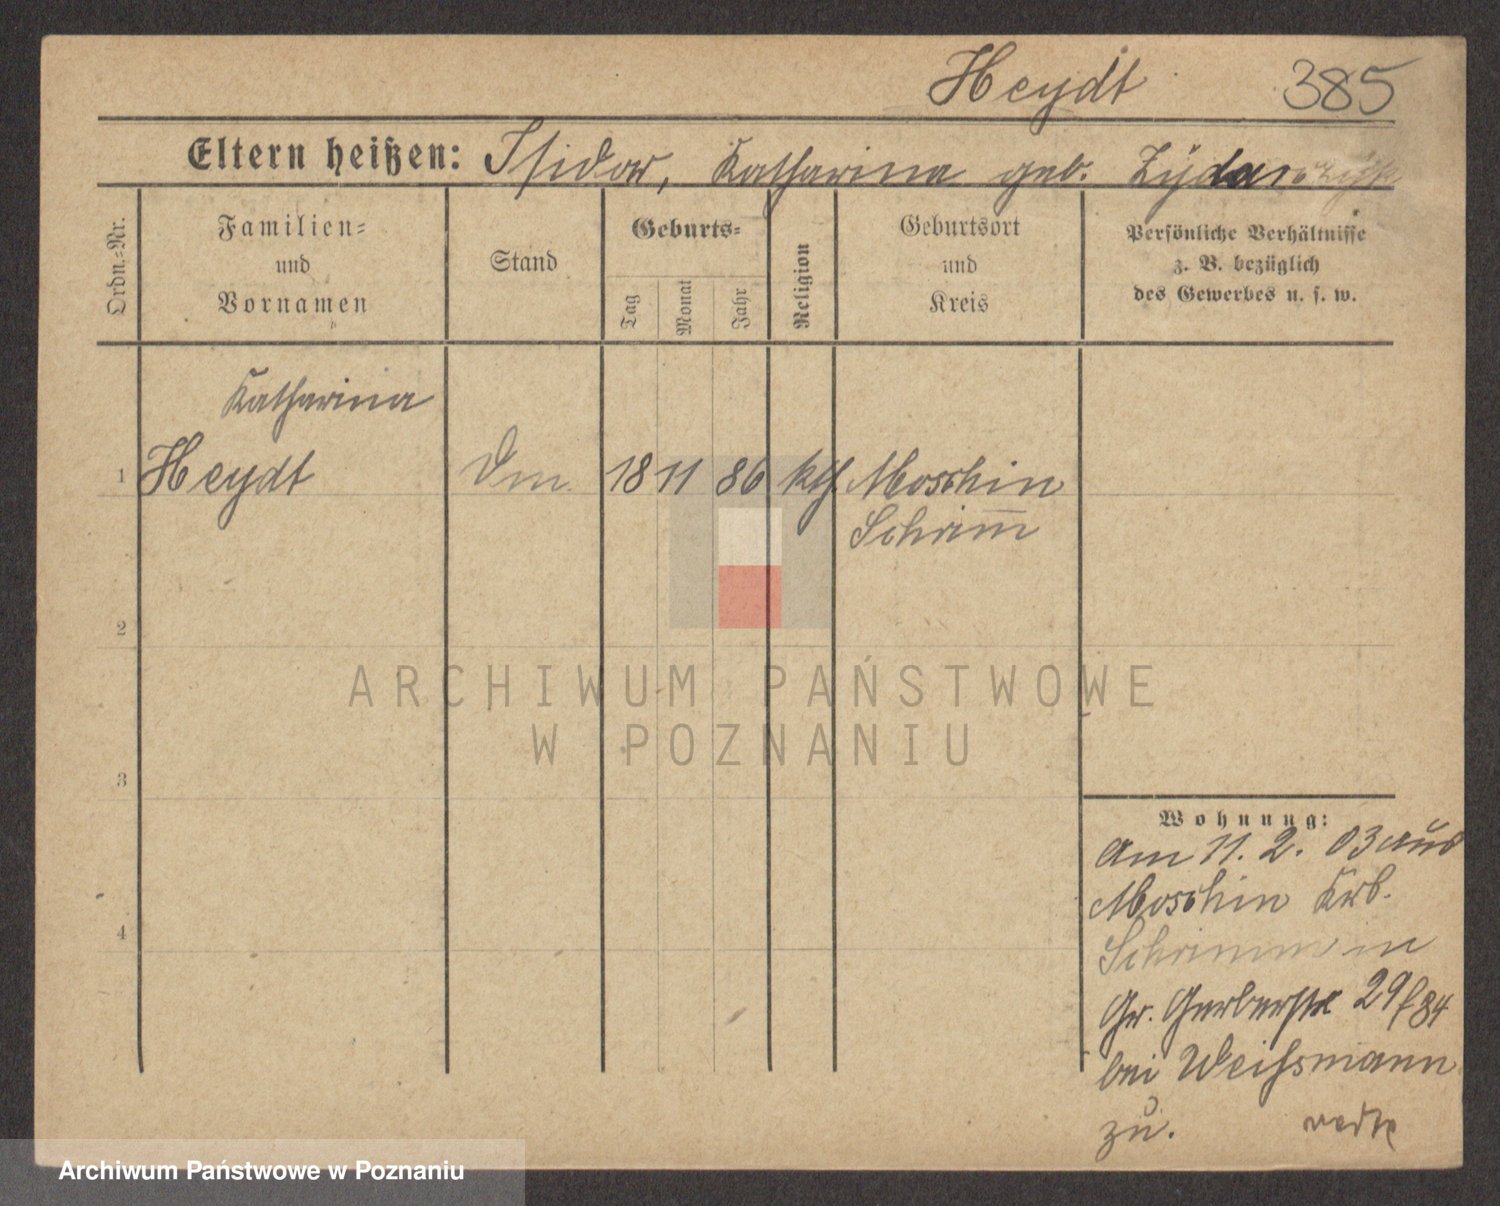 Heydt 385
Eltern heißen: Isidor, Katharina geb.
Ordn.-Nr.
Familien-
und
Vornamen
Stand
Geburts-
Tag
Monat
Jahr
Religion
Geburtsort
und
Kreis
Persönliche Verhältnisse
z. B. bezüglich
des Gewerbes u. s. w.
Katharina
1 Heydt Dm. 18 11 86 kth. Moschin
Schrim̅
2
3
4
Wohnung:
Am 11. 2. 03 aus
Moschin Krb.
Schrimm in
Gr. Gerberstr 29/34
bei Weissmann
zu.
ARCHIWUM PAŃSTWOWE
W POZNANIU
Archiwum Państwowe w Poznaniu